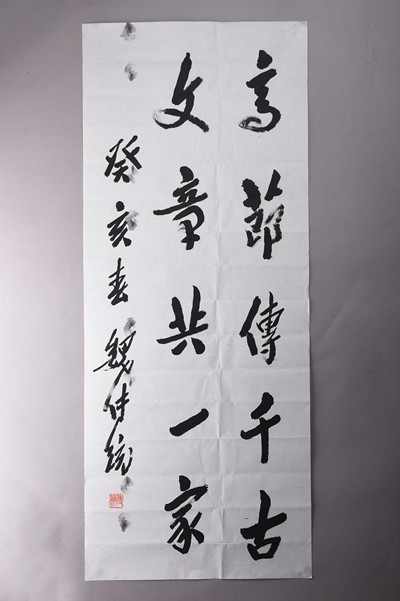 高節傳千古
文章共一家
癸亥春 魏传统